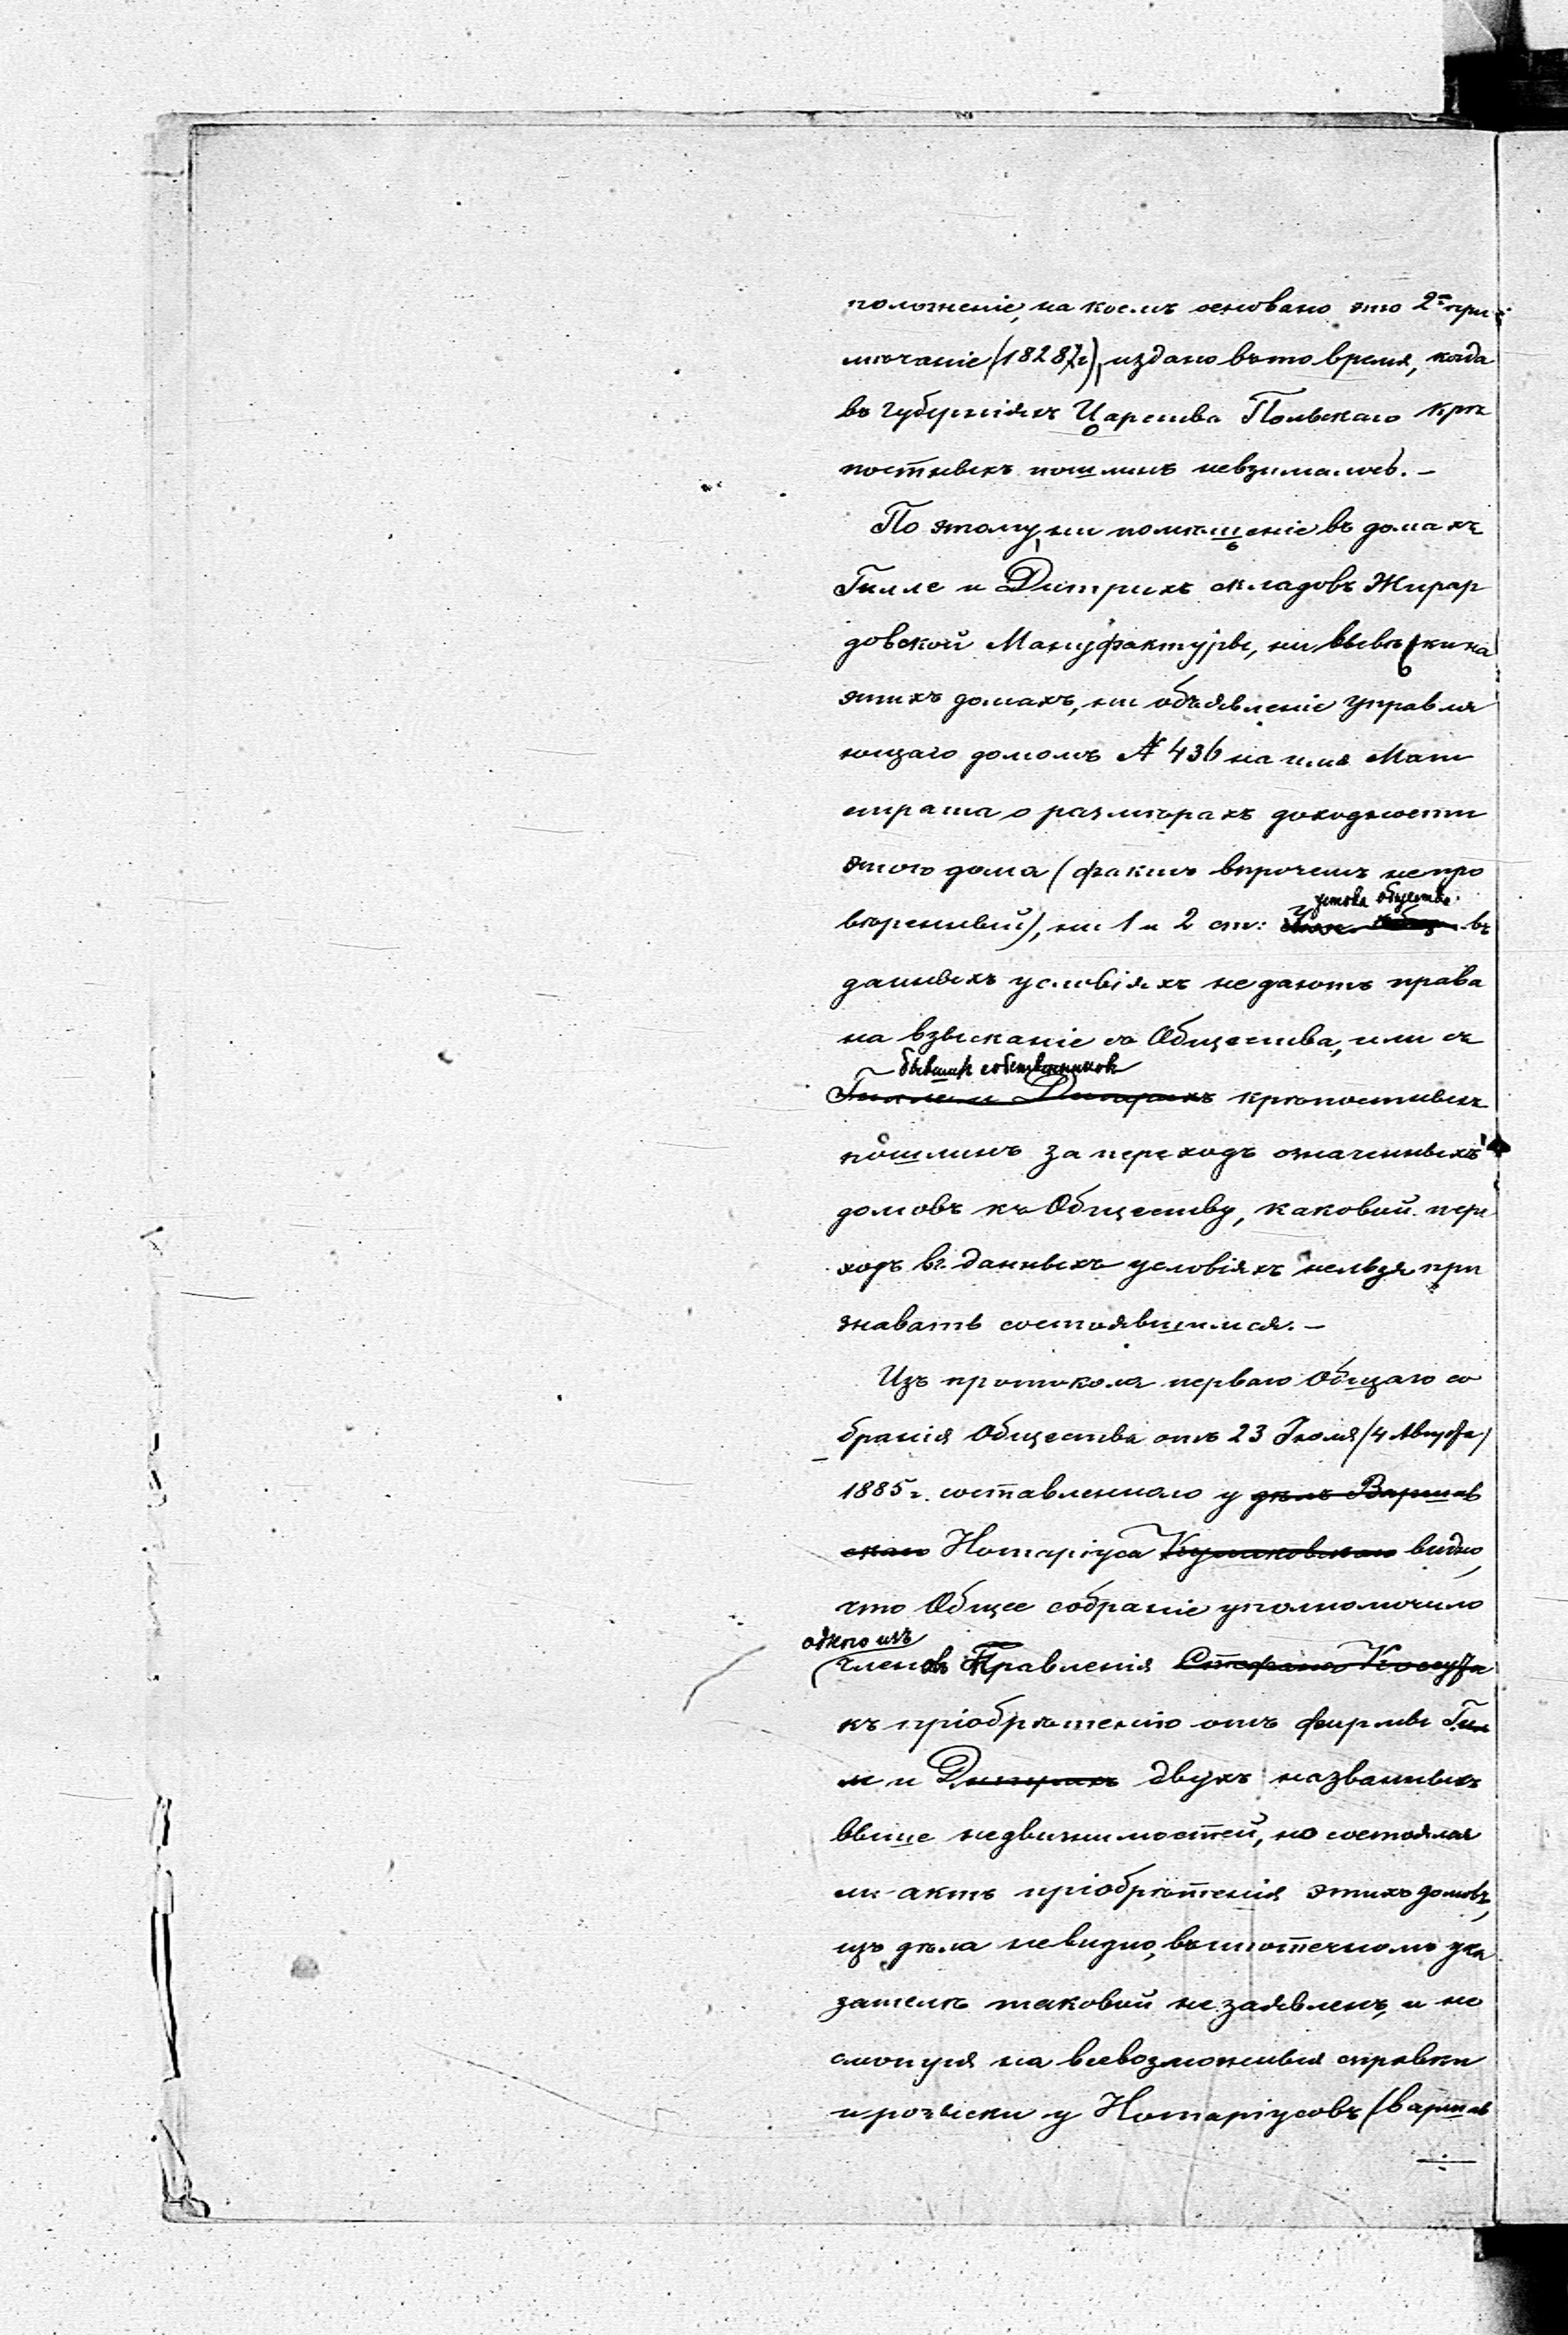 положеніе, на коемъ основано это 2ое при
мѣчаніе (1828 г), издано въ то время, когда
въ губерніяхъ Царства Польскаго крѣ
постныхъ пошлинъ невзималось. –
По этому, ни помѣщеніе въ домахъ
Гилле и Дитрихъ складовъ Жирар
довской Мануфактуры, ни вывѣски на
этихъ домахъ, ни объявленіе управля
ющаго домомъ № 436 на имя Маги
страта о размѣрахъ доходности
этого дома (фактъ впрочемъ непро
вѣренный), ни 1 и 2 ст: устава общества въ
данныхъ условіяхъ не даютъ права
на взысканіе съ Общества, или съ
бывшихъ собственниковъ
Гилле и Дитрихъ крѣпостныхъ
пошлинъ за переходъ означенныхъ
домовъ къ Обществу, каковой пере
ходъ въ данныхъ условіяхъ нельзя при
знавать состоявшимся. –
Изъ протокола перваго Общаго со
бранія Общества отъ 23 Іюля (4 Августа)
1885 г. составленнаго у дѣлъ Варшав
скаго Нотаріуса видно,
что Общее собраніе уполномочило
одного изъ
членовъ Правленія Стефана Коссута
къ пріобрѣтенію отъ фирмы Гил
ле и Дитрихъ двухъ названныхъ
выше недвижимостей, но состоялся
ли актъ пріобрѣтенія этихъ домовъ,
изъ дѣла невидно, въ ипотечномъ ука
зателѣ таковой не заявленъ, и не
смотря на всевозможныя справки
и розыски у Нотаріусовъ (Варшав